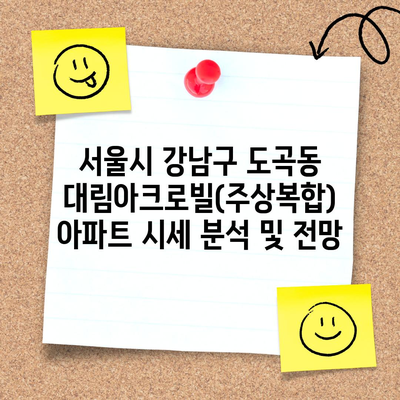 서울시 강남구 도곡동
대림아크로빌(주상복합)
아파트 시세 분석 및 전망